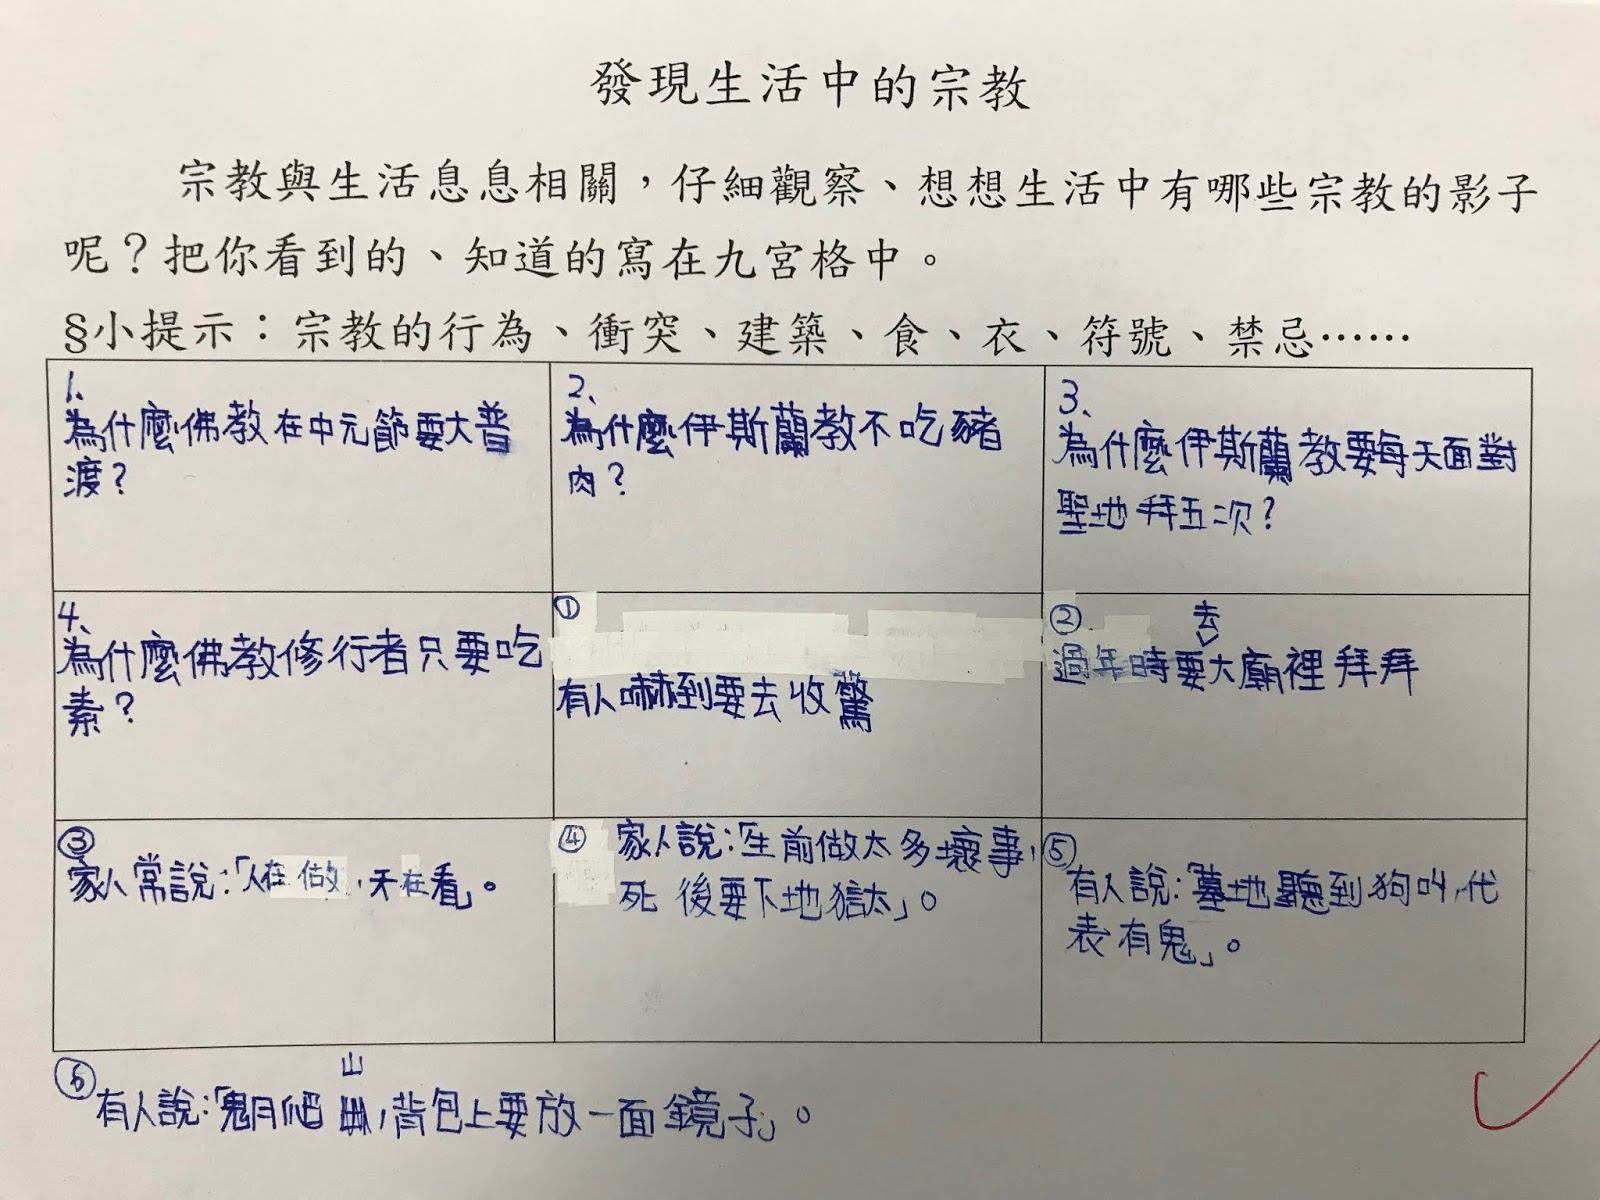 發現生活中的宗教
宗教與生活息息相關，仔細觀察、想想生活中有哪些宗教的影子
呢？把你看到的、知道的寫在九宮格中。
§小提示：宗教的行為、衝突、建築、食、衣、符號、禁忌……
1、
為什麼佛教在中元節要大普
渡？
2、
為什麼伊斯蘭教不吃豬
肉？
3、
為什麼伊斯蘭教要每天面對
聖地拜五次？
4、
為什麼佛教修行者只要吃
素？
①
有人嚇到要去收驚
②
去
過年時要大廟裡拜拜
③
家人常說：「人在做，天在看」。
④ 家人說：「生前做太多壞事，
死後要下地獄」。
⑤
有人說：「墓地聽到狗叫，代
表有鬼」。
⑥
山
有人說：「鬼月爬，背包上要放一面鏡子」。